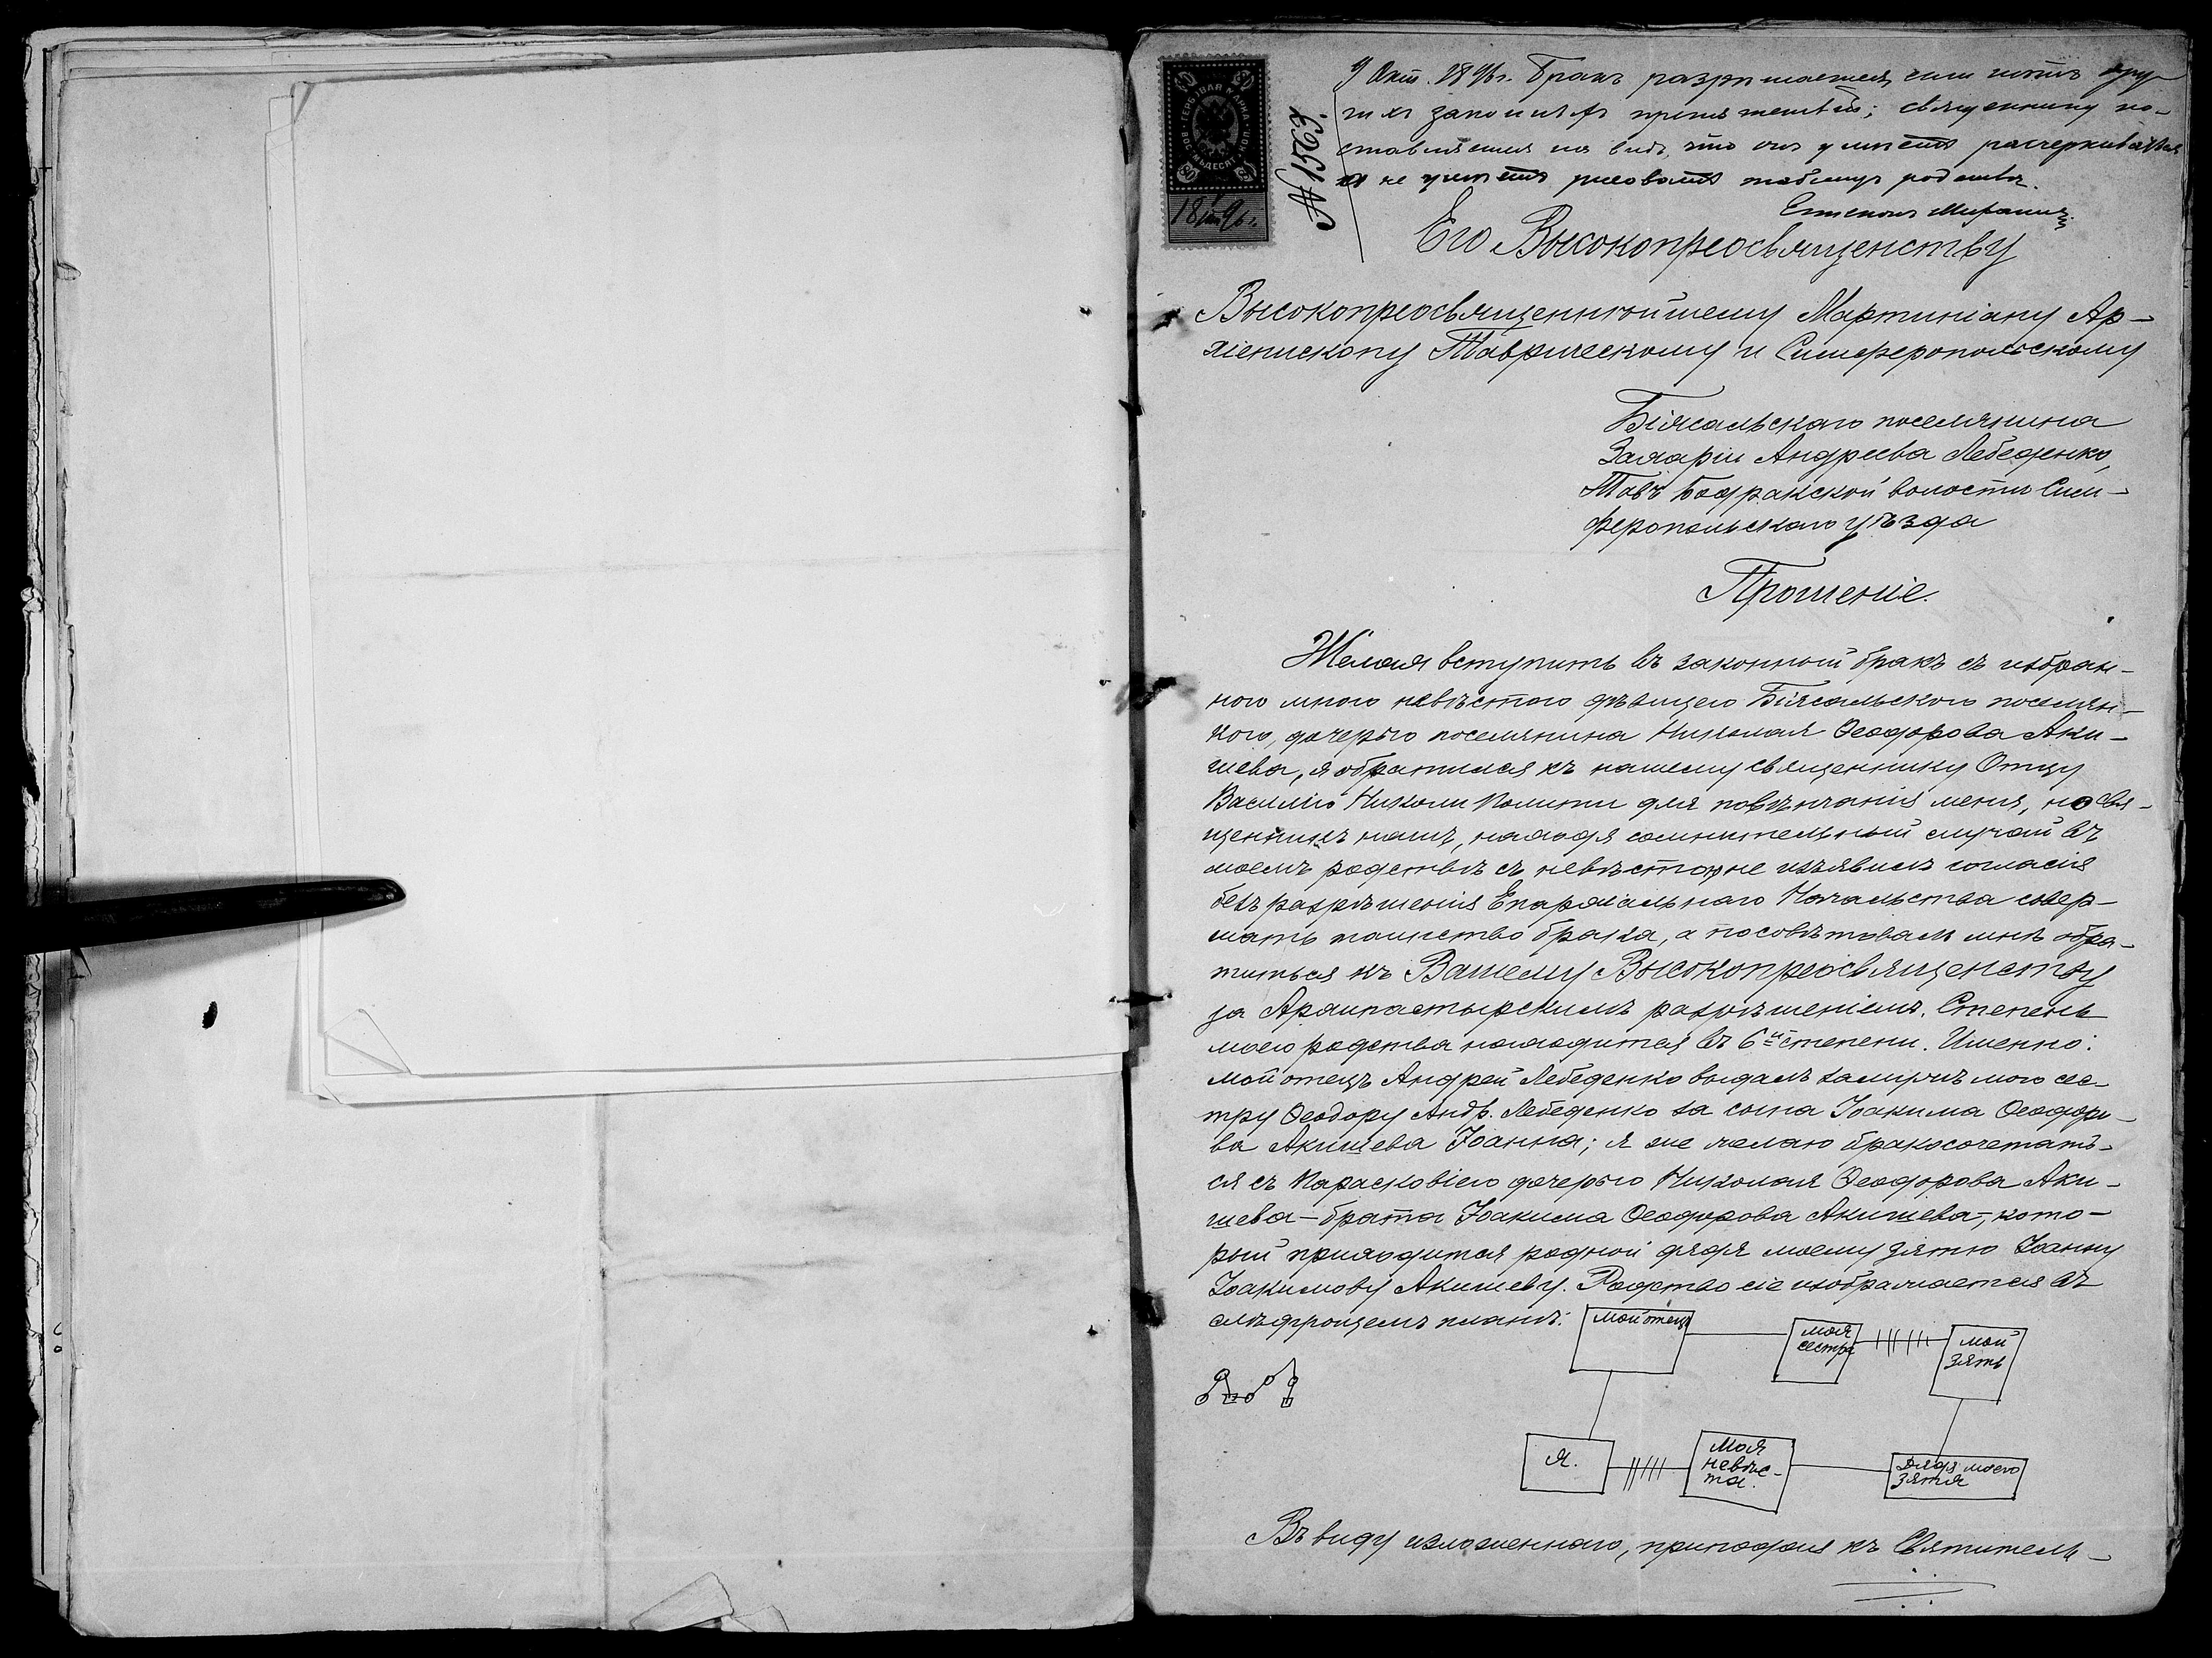 9 Окт. 1896 г. Бракъ разрѣшается, если нѣтъ дру-
гихъ законныхъ препятствій; священнику по-
ставляется на видъ, что онъ умѣетъ расчеркиваться
а не умѣетъ рисовать таблицу родства.
ГЕРБОВАЯ МАРКА
ВОСЕМЬДЕСЯТ КОП.
80
18 96 г.
№ 1523
Его Высокопреосвященству
Высокопреосвященнѣйшему Мартиніану Ар-
хіепископу Таврическому и Симферопольскому
Біясальскаго поселянина
Захаріи Андреева Лебеденко,
Тавъ Бадракской волости Сим-
феропольскаго уѣзда
Прошеніе.
Желая вступить въ законный бракъ съ избран-
ною мною невѣстою дѣвицею Біясальскою поселян-
кою, дочерью поселянина Николая Ѳеодорова Аки-
шева, я обратился къ нашему священнику Отцу
Василію Николи Полити для повѣнчанія меня, но свя-
щенникъ нашъ, находя сомнительный случай въ
моемъ родствѣ съ невѣстою, не изъявилъ согласія
безъ разрѣшенія Епархіальнаго Начальства совер-
шать таинство брака, а посовѣтовалъ мнѣ обра-
титься къ Вашему Высокопреосвященству
за Архипастырскимъ разрѣшеніемъ. Степень
моего родства находится въ 6й степени. Именно:
мой отецъ Андрей Лебеденко выдалъ замужъ мою сес-
тру Ѳеодору Андр. Лебеденко за сына Іоакима Ѳеодоро-
ва Акишева Іоанна; я же желаю бракосочетать-
ся съ Парасковіею дочерью Николая Ѳеодорова Аки-
шева – брата Іоакима Ѳеодорова Акишева –, кото-
рый приходится родной дядя моему зятю Іоанну
Іоакимову Акишеву. Родство сіе изображается въ
слѣдующемъ планѣ:
мой отецъ
моя
сестра
мой
зять
Я.
Моя
невѣс-
та.
Дядя моего
зятя
Въ виду изложеннаго, припадая къ Святитель-